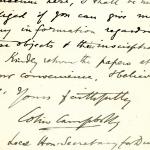 here, I shall be
if you can give me
any information regarding
objects & the inscription
Kindly return the papers at
convenience, & believe
Yours faithfully
Colin Campbell
Local Hon. Secretary for Du